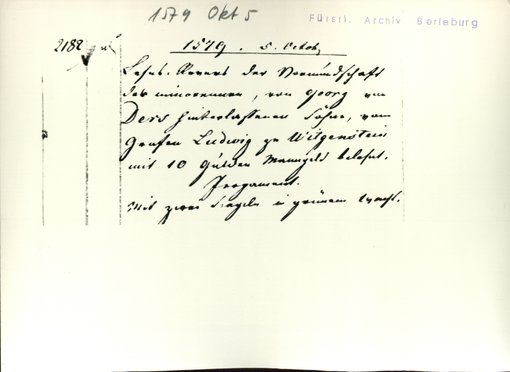 1579 Okt 5
Fürstl. Archiv Berleburg
2182
1579. 5. Octob.
Lehns-Revers der Vormundschaft
der minorennen, von Georg von
Ders hinterlassenen Söhne, vom
Grafen Ludwig zu Witgenstein
mit 10 Gulden Manngeld belehnt.
Pergament.
Mit zwei Siegeln in grünem Wachs.